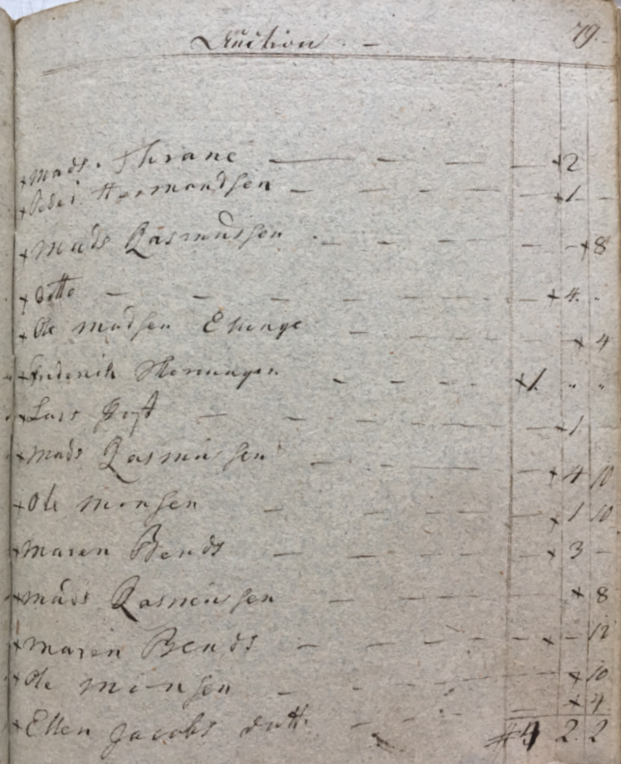 Auction. - 79.
+ Mads. Thrane - - - - +2
+ Peder Hermandsen - - - - +1 -
+ Mads Rasmussen - - - - - +8
+ Ditto - - - - - +4. .
+ Ole Madsen - - - + 4
+ Friderich - - - +1. " "
+ Lars - - - - +1 -
+ Mads Rasmusen - - - + 4 10
+ Ole monsen - - - +1 10
+ Maren Bends - - - - + 3 -
+ Mads Rasmusen - - - + 8
+ Maren Bends - - - + - 12
+ Ole monsen - - - + 10
+ Ellen Jacobs datt. - - - + 4
4 2 2